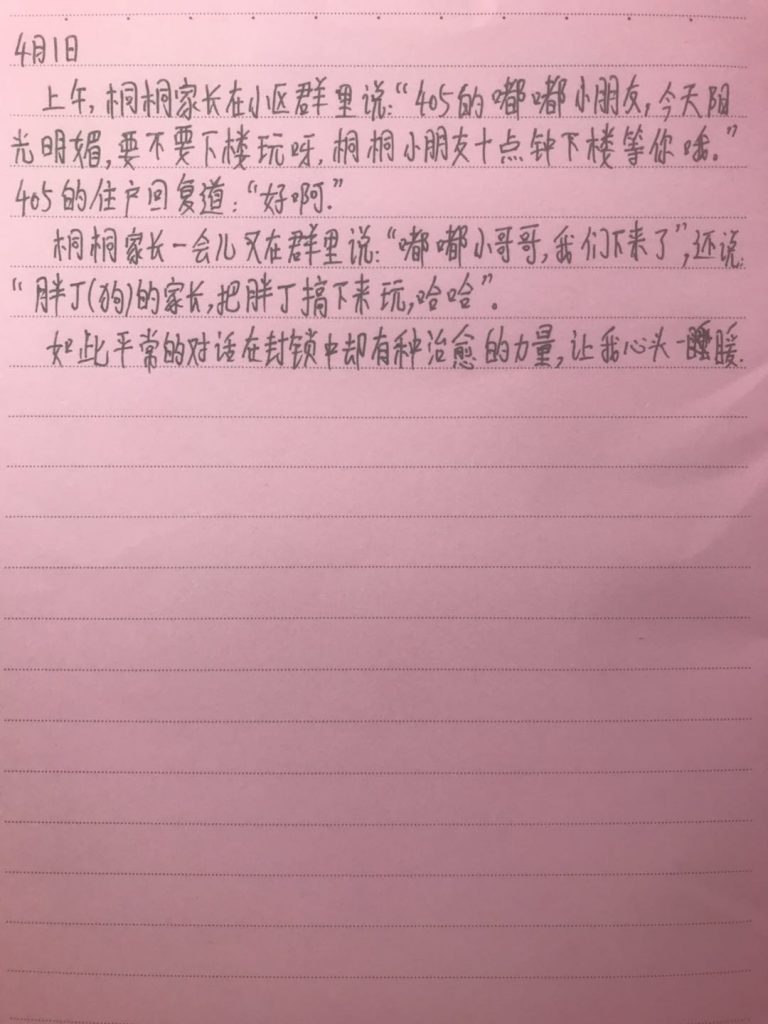 4月1日
上午,桐桐家长在小区群里说:“405的嘟嘟小朋友,今天阳
光明媚,要不要下楼玩呀,桐桐小朋友十点钟下楼等你哦。”
405的住户回复道:“好啊.”
桐桐家长一会儿又在群里说:“嘟嘟小哥哥,我们下来了”,还说:
“胖丁(狗)的家长,把胖丁搞下来玩,哈哈”。
如此平常的对话在封锁中却有种治愈的力量,让我心头一暖.